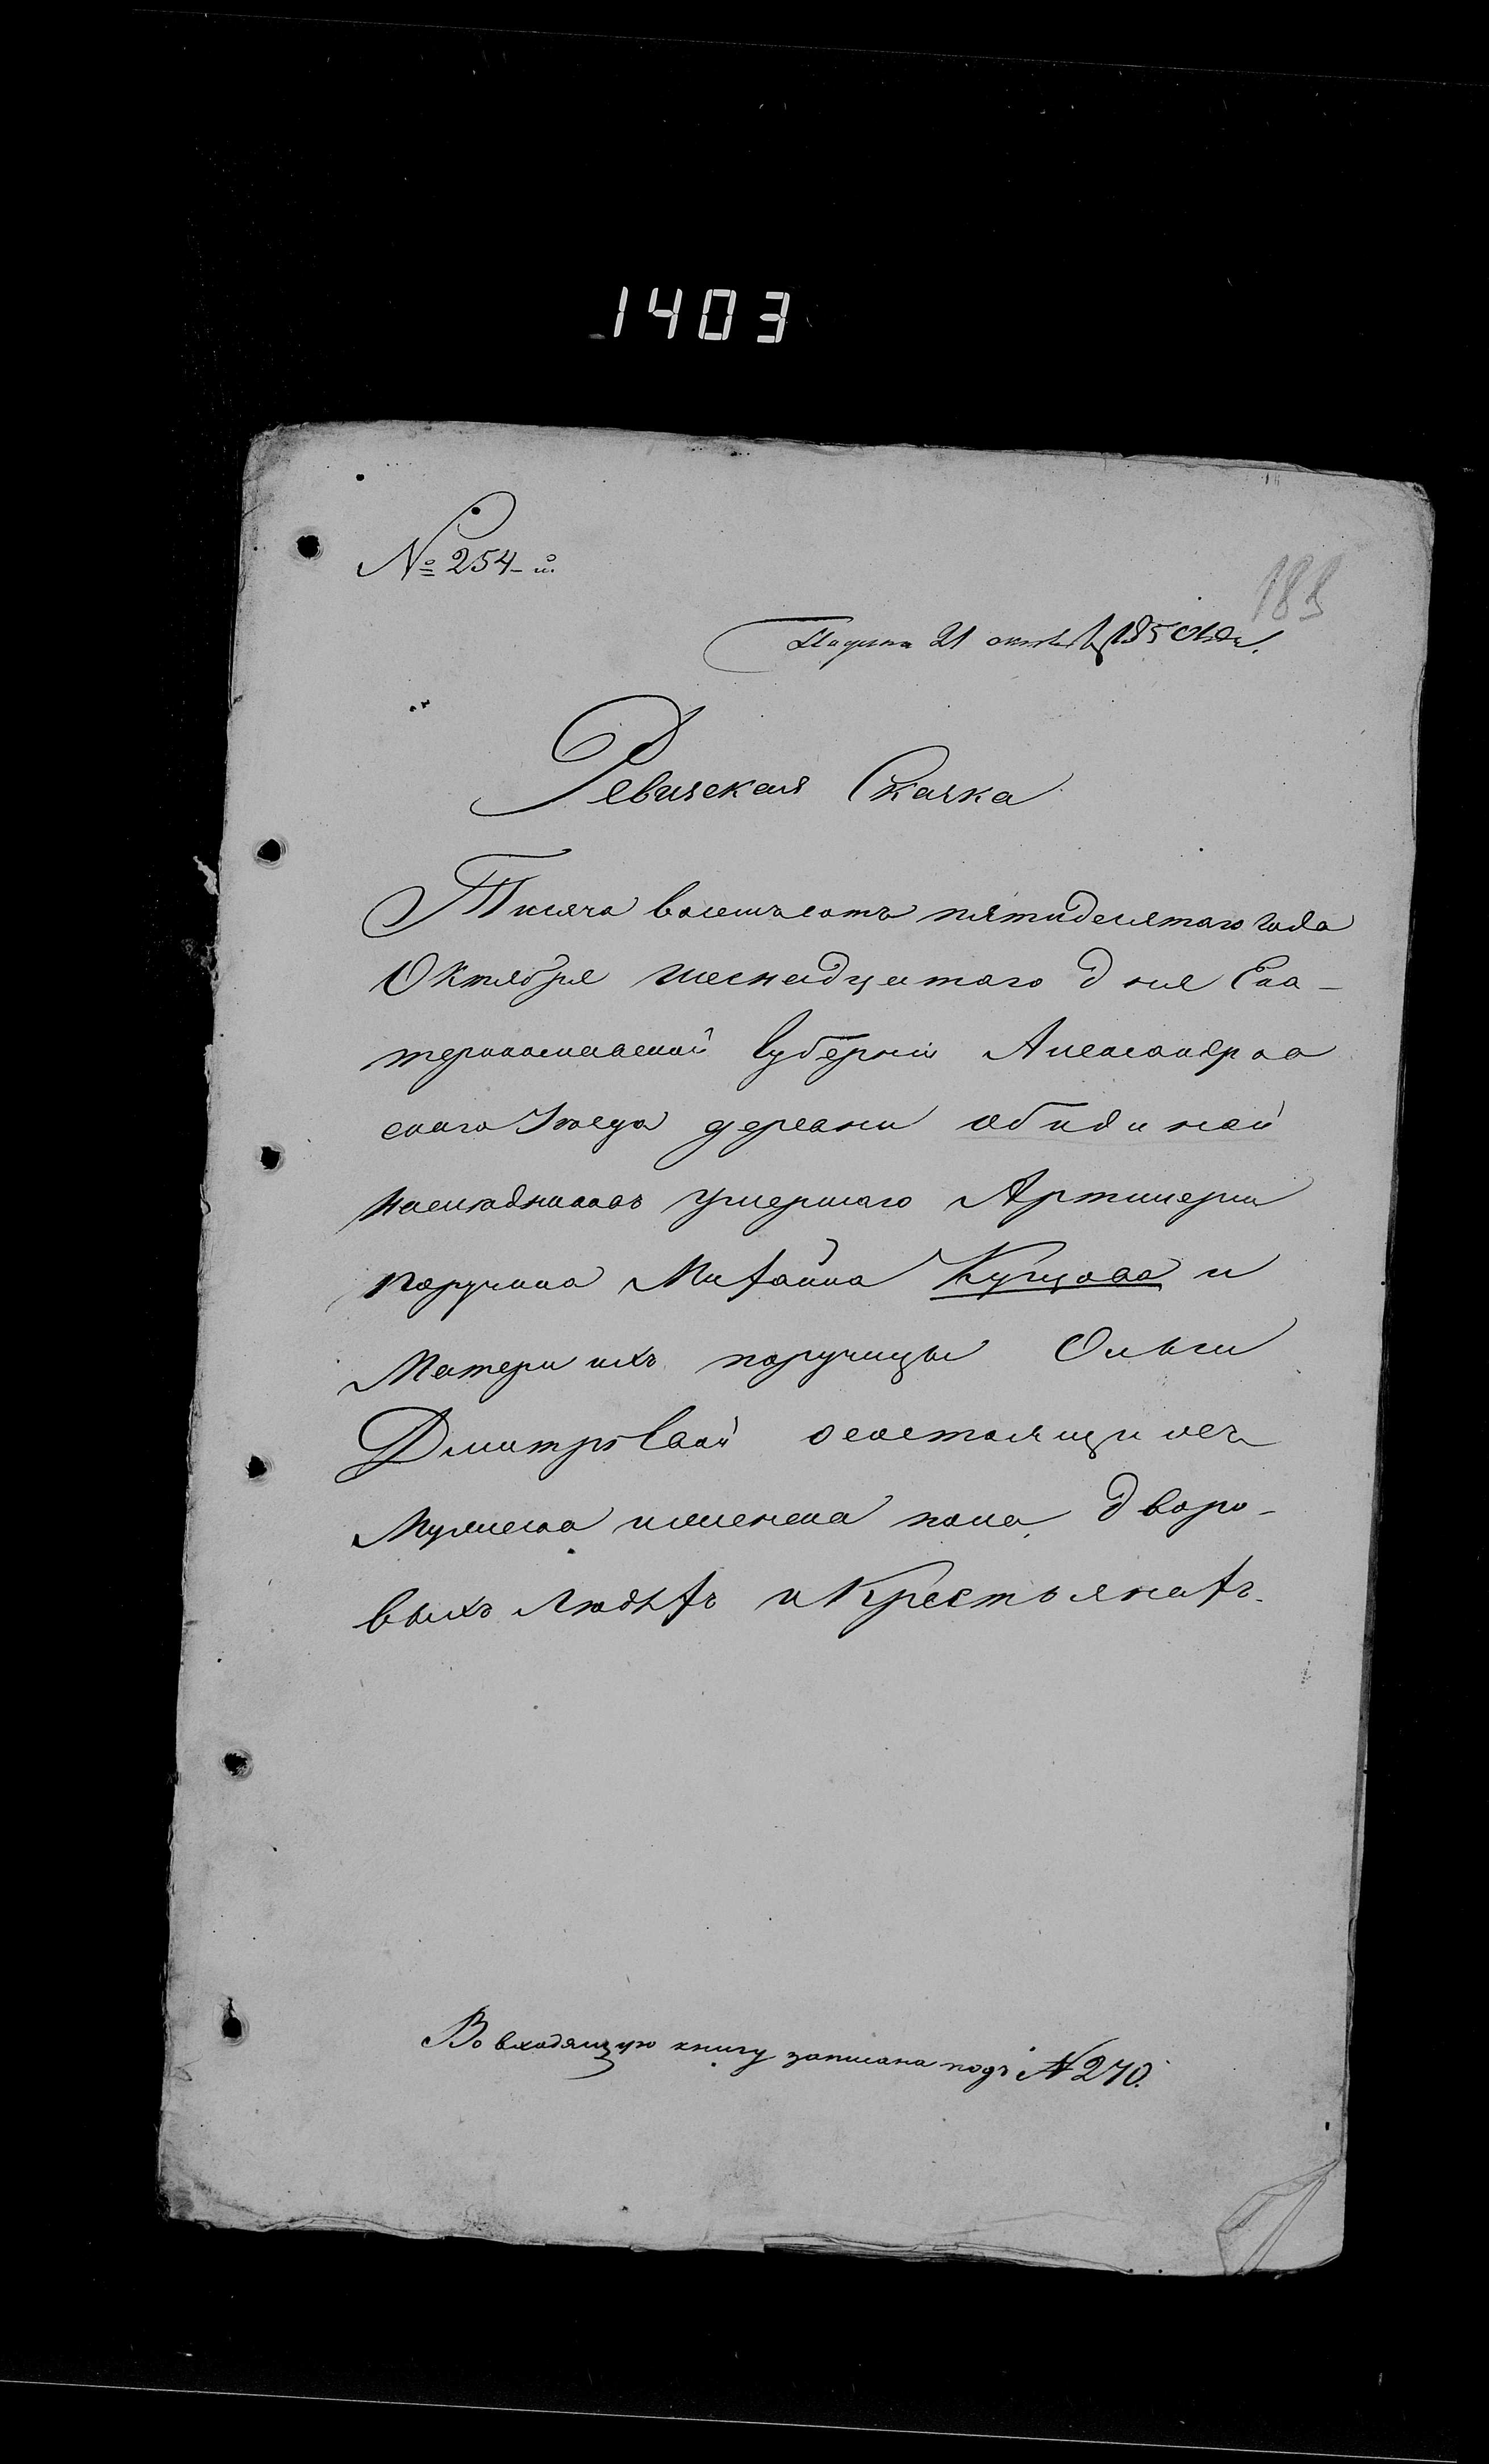 1403
№ 254-й.
183
Подана 21 октября 1850 года.
Ревизская Скаска
Тысяча восемьсотъ пятидесятаго года
Октября шеснадцатаго дня Ека-
теринославской Губерніи Александров
скаго Уезда деревни Обидиной
наследниковъ умершаго Артилеріи
поручика Михайла Купцова и
Матери ихъ поручицы Ольги
Дмитровой о состоящихъ
Мужеска и женска пола дворо-
выхъ людяхъ и Крестьянахъ.
Во входящую книгу записана подъ № 270.